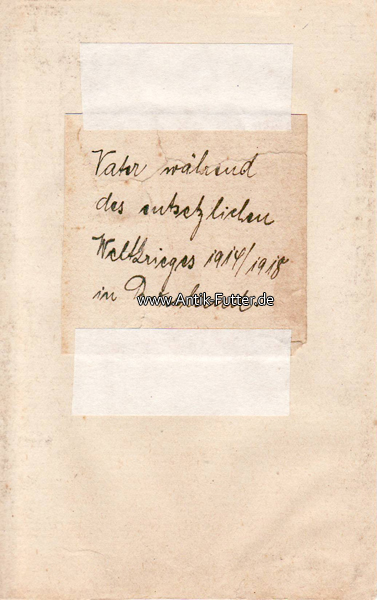 Vater während
des entsetzlichen
Weltkrieges 1914/1918
in
www.Antik-Futter.de